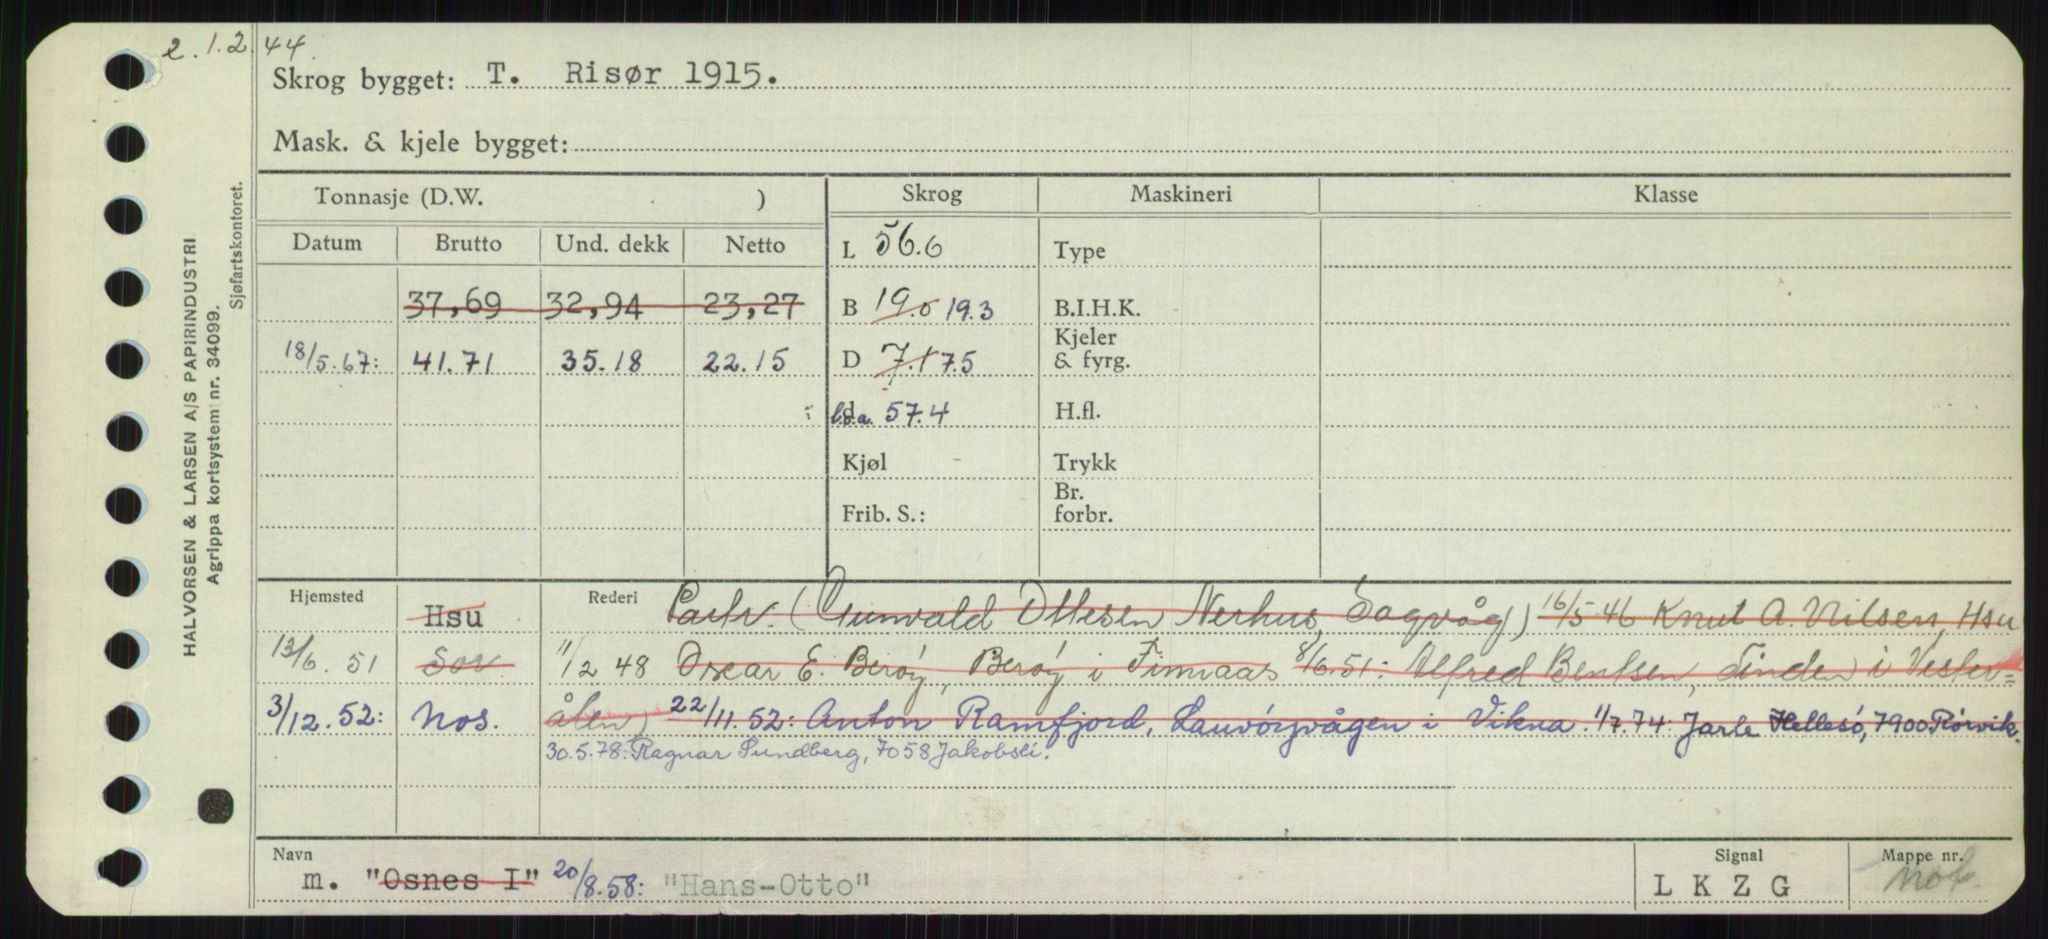 2.1.2.44.
Skrog bygget: T. Risør 1915.
Mask. & kjele bygget:
HALVORSEN & LARSEN A/S PAPIRINDUSTRI
Agrippa kortsystem nr. 34099.
Sjøfartskontoret.
Tonnasje (D.W. ) Skrog Maskineri Klasse
Datum Brutto Und. dekk Netto
L 56.6 Type
37,69 32,94 23,27 B 19.0 19.3 B.I.H.K.
18/5.67: 41.71 35.18 22.15 D 7.1 7.5 Kjeler & fyrg.
l.o.a. 57.4 H.fl.
Kjøl Trykk
Frib. S.: Br. forbr.
Hjemsted Hsu Rederi Partr. (Gunvald Ottesen Nerhus, Sagvåg) 16/5 46 Knut A. Nilsen, Hsu
13/6. 51 Sov 11/2 48 Oscar E. Berøy, Berøy i Finnaas 8/6.51: Alfred Bentsen, Tinden i Vester=
3/12.52: Nos. ålen) 22/11.52: Anton Ramfjord, Lauvøyvågen i Vikna. 1/7.74: Jarle Hellesø, 7900 Rørvik.
30.5.78: Ragnar Sundberg, 7058 Jakobsli.
Navn m. "Osnes I" 20/8.58: "Hans-Otto"
Signal LKZG
Mappe nr.